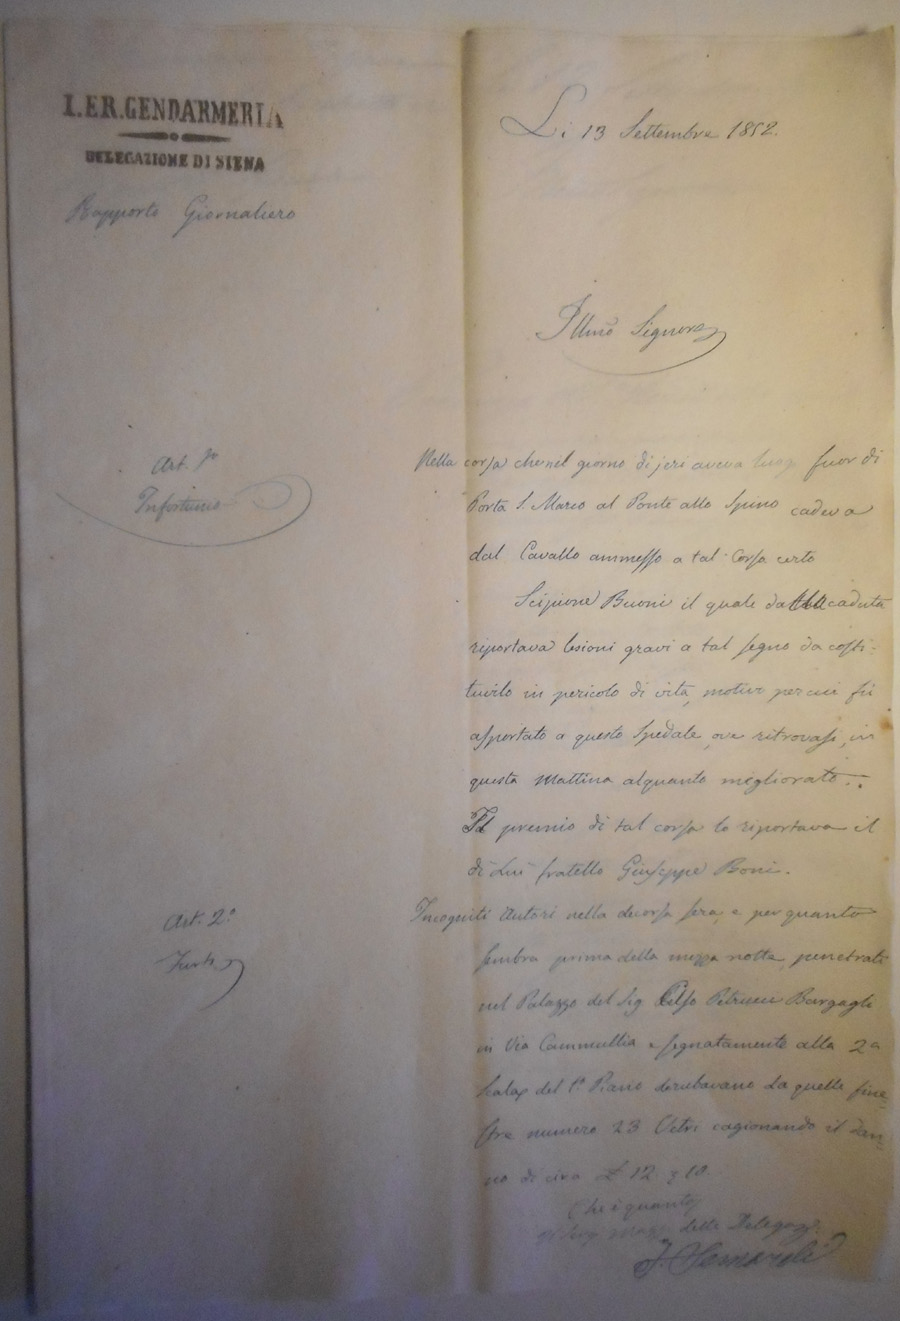 I. E R. GENDARMERIA
DELEGAZIONE DI SIENA
Rapporto Giornaliero
Li 13 Settembre 1852.
Illmo Signore
Art. 1º
Infortunio
Nella corsa che nel giorno di jeri aveva luogo fuor di
Porta S. Marco al Ponte allo Spino cadeva
dal Cavallo ammesso a tal Corsa certo
Scipione Buoni il quale dalla caduta
riportava lesioni gravi a tal segno da costi-
tuirlo in pericolo di vita, motivo per cui fù
asportato a questo Spedale, ove ritrovasi, in
questa Mattina alquanto migliorato.
Il premio di tal corsa lo riportava il
di Lui fratello Giuseppe Boni.
Art. 2º
Furto
Incogniti Autori nella decorsa sera, e per quanto
sembra prima della mezza notte, penetrati
nel Palazzo del Sig Celso Petrucci Bargagli
in Via Cammullia e segnatamente alla 2a
Scala del 1º Piano derubavano da quelle fine-
stre numero 23 Vetri cagionando il dan-
no di circa £ 12 10
Che è quanto
della Delegaz.